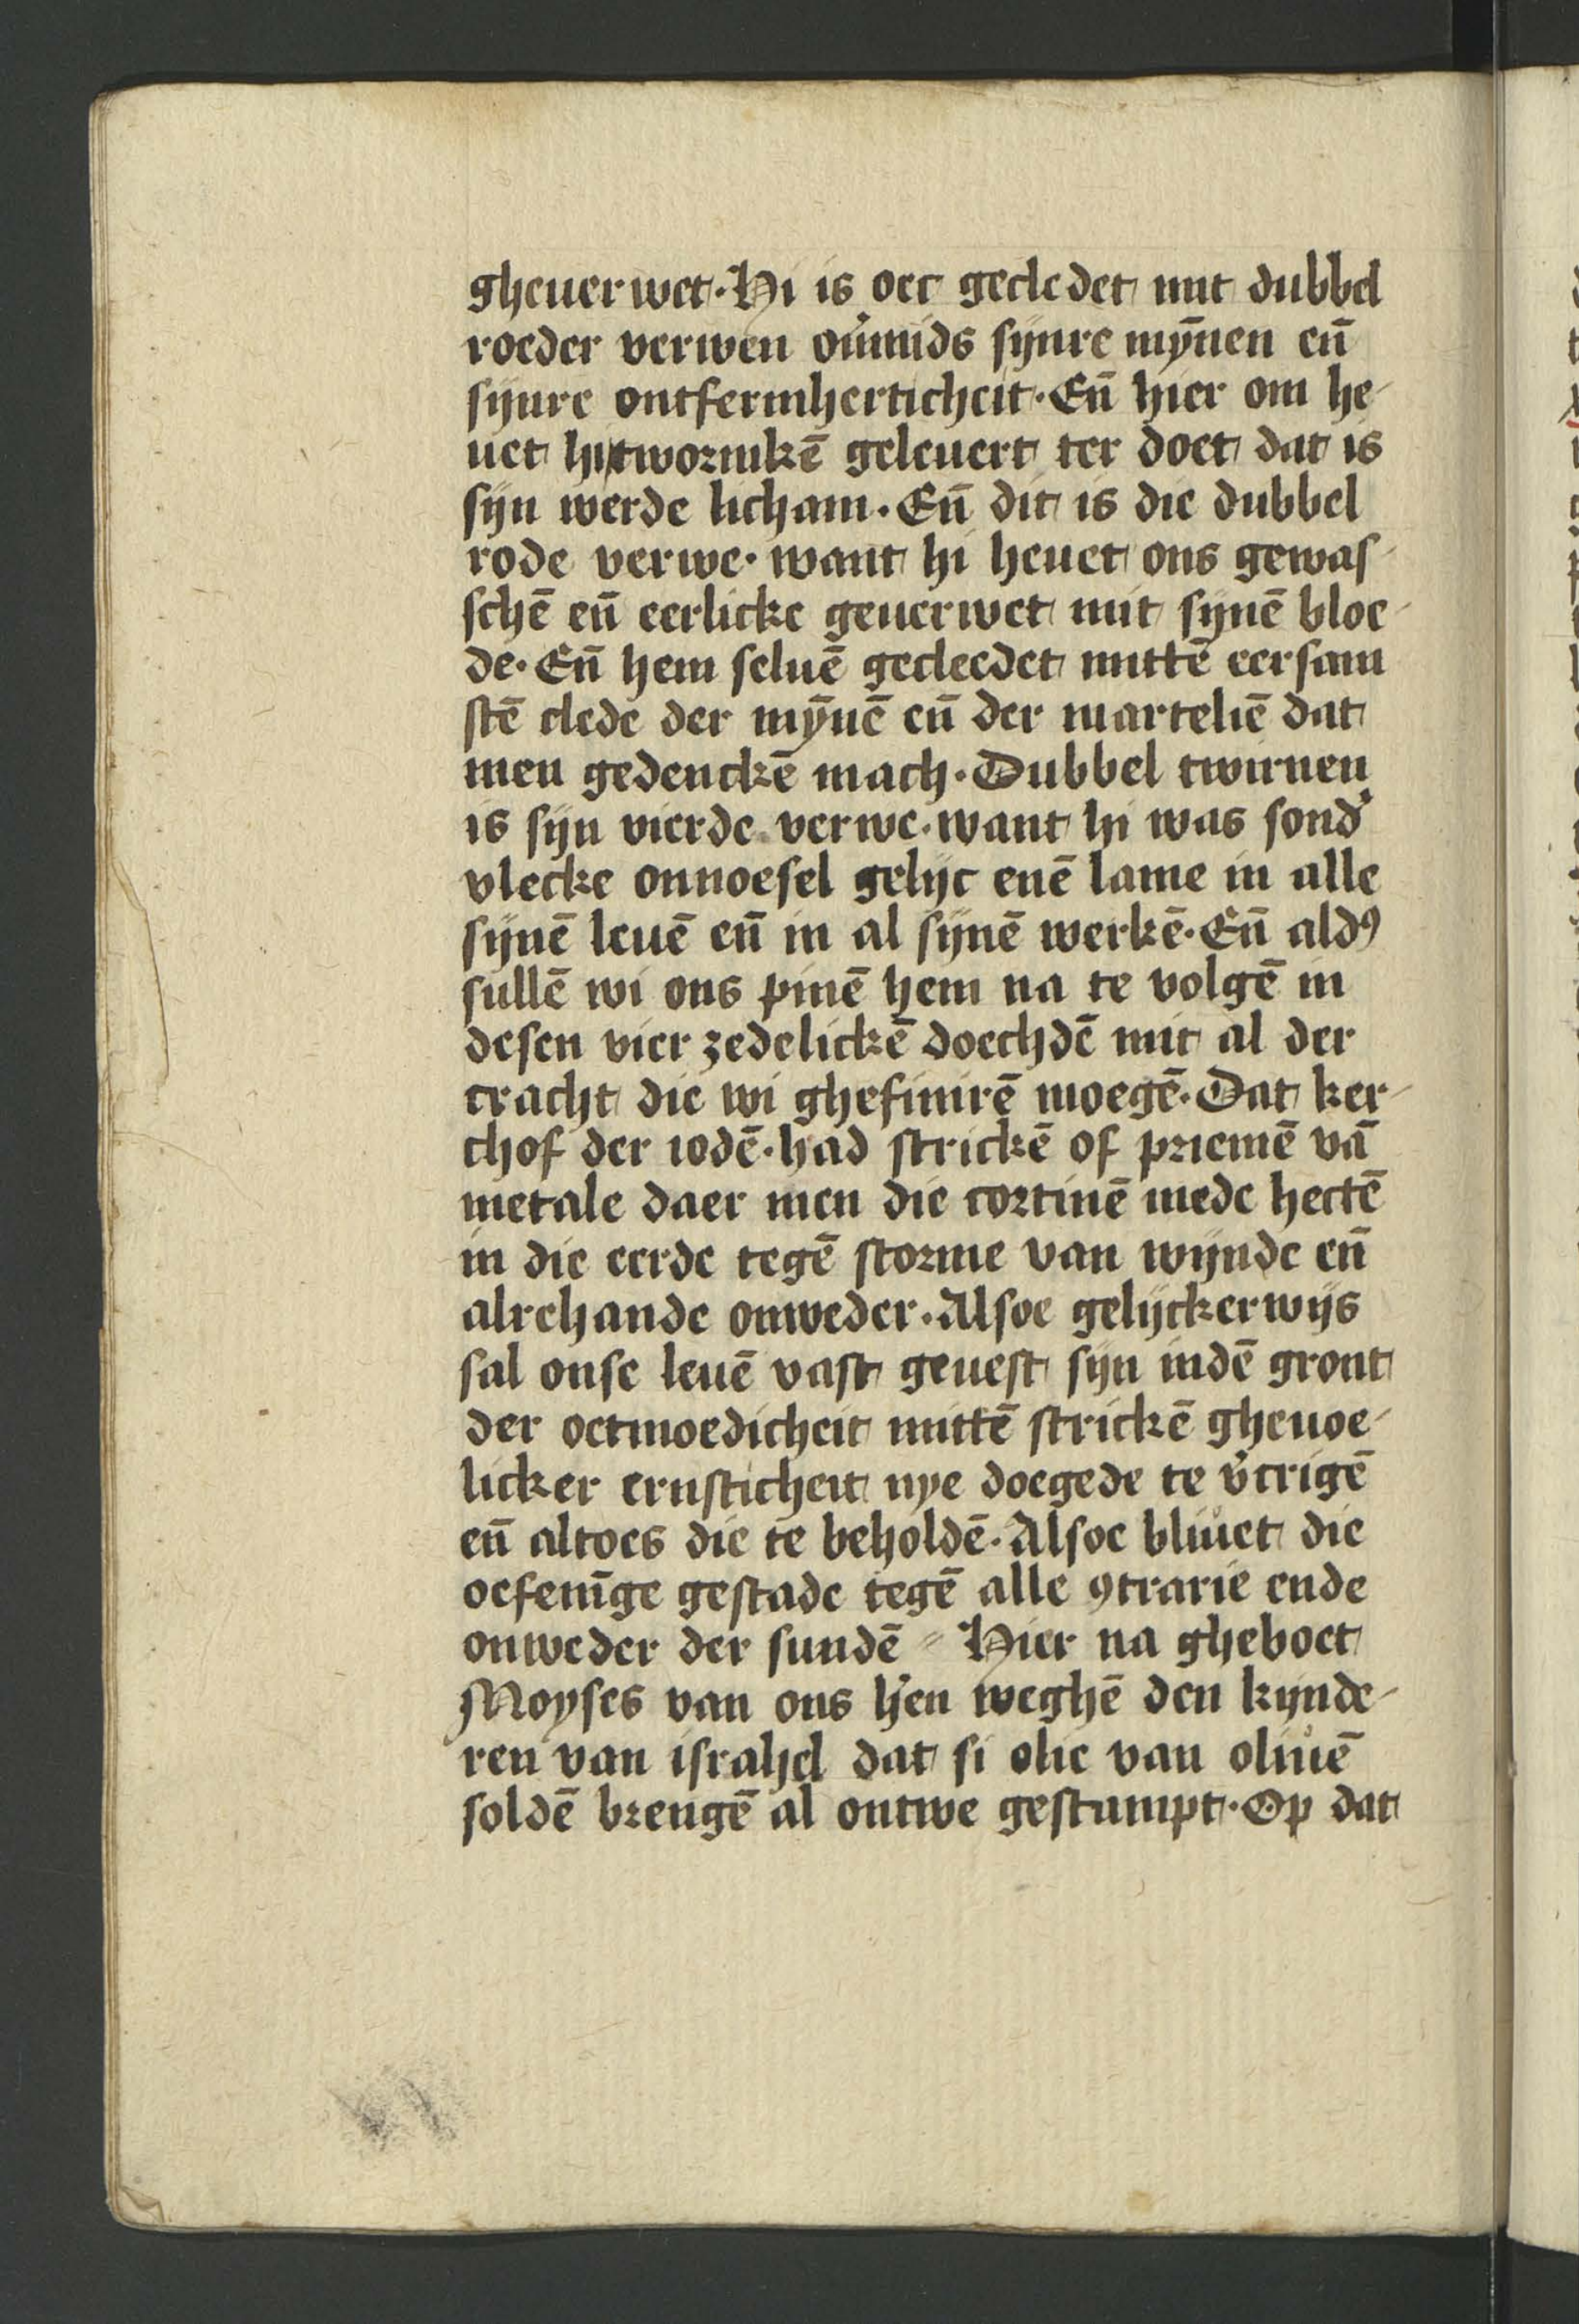 gheuerwet · Hi is oec gecledet mit dubbel
roeder verwen ou̓mids sijnre mȳnen en̄
sijnre ontfermherticheit · En̄ hier om he-
uet hi twormkē geleuert ter doet dat is
sijn werde licham · En̄ dit is die dubbel
rode verwe · want hi heuet ons gewas-
schē en̄ eerlicke geuerwet mit sijnē bloe-
de · En̄ hem seluē gecleedet mittē eersam
stē clede der mȳnē en̄ der marteliē dat
men gedenckē mach · Dubbel twirnen
is sijn vierde verwe · want hi was sond̓
vlecke onnoesel gelijc enē lamme in alle
sijnē leuē en̄ in al sijnē werkē · En̄ aldꝰ
sullē wi ons pinē hem na te volgē in
desen vier zedelickē doechdē mit al der
cracht die wi ghefinirē moegē · Dat ker-
chof der iodē · had strickē of priemē vā
metale daer men die cortinē mede hectē
in die eerde tegē storme van wijnde en̄
alrehande onweder · Alsoe gelijckerwijs
sal onse leuē vast geuest sijn indē gront
der oetmoedicheit mittē strickē gheuoe-
licker ernsticheit nye doegede te v̓crigē
en̄ altoes die te beholdē · Alsoe bliuet die
oefenīge gestade tegē alle ꝯtrarie ende
onweder der sundē ⸗ Hier na gheboet
Moyses van ons h̓en weghē den kijnde-
ren van israhel dat si olie van oliuē
soldē brengē al ontwe gestampt · Op dat